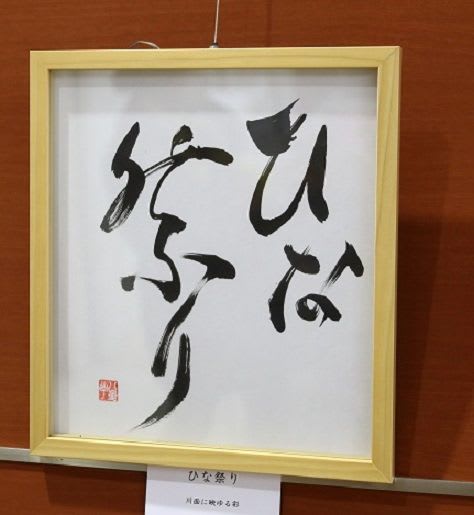 ひな
祭り
ひな祭り
川面に映ゆる彩